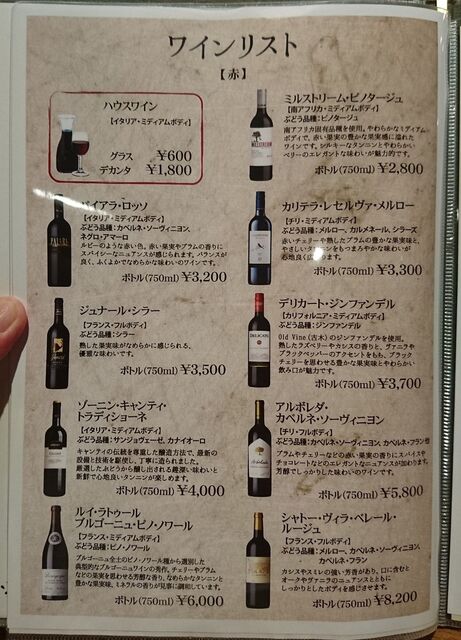 ワインリスト
【赤】
ハウスワイン
【イタリア・ミディアムボディ】
グラス ¥600
デカンタ ¥1,800
ミルストリーム・ピノタージュ
【南アフリカ・ミディアムボディ】
ぶどう品種:ピノタージュ
南アフリカ固有品種を使用。やわらかなミディアム
ボディで、赤い果実の豊かな果実感に溢れた
ワインです。シルキーなタンニンとやわらかい
ベリーのエレガントな味わいが魅力的です。
ボトル(750ml) ¥2,800
パイアラ・ロッソ
【イタリア・ミディアムボディ】
ぶどう品種:カベルネ・ソーヴィニヨン、
ネグロ・アマーロ
ルビーのような赤い色。赤い果実やプラムの香りに
スパイシーなニュアンスが感じられます。バランスが
良く、ふくよかでなめらかな味わいのワインです。
ボトル(750ml) ¥3,200
カリテラ・レセルヴァ・メルロー
【チリ・ミディアムボディ】
ぶどう品種:メルロー、カルメネール、シラーズ
赤いチェリーや熟したプラムの豊かな果実味と、
やさしいタンニンをもつまろやかな味わいが
心地良く広がります。
ボトル(750ml) ¥3,300
ジュナール・シラー
【フランス・フルボディ】
ぶどう品種:シラー
熟した果実味がなめらかに感じられる、
優雅な味わいです。
ボトル(750ml) ¥3,500
デリカート・ジンファンデル
【カリフォルニア・ミディアムボディ】
ぶどう品種:ジンファンデル
Old Vine(古木)のジンファンデルを使用。
熟したラズベリーやカシスの香りと、ヴァニラや
ブラックペッパーのアクセントをもち、ブラック
チェリーを思わせる豊かな果実味とやわらかな
飲み口が魅力です。
ボトル(750ml) ¥3,700
ゾーニン・キャンティ・
トラディショーネ
【イタリア・ミディアムボディ】
ぶどう品種:サンジョヴェーゼ、カナイオーロ
キャンティの伝統を尊重した醸造方法で、最新の
設備と技術を駆使し、丁寧に造られました。
厳選したぶどうから醸し出される趣深い味わいと
新鮮で心地良いタンニンが楽しめます。
ボトル(750ml) ¥4,000
アルボレダ・
カベルネ・ソーヴィニヨン
【チリ・フルボディ】
ぶどう品種:カベルネ・ソーヴィニヨン、カベルネ・フラン他
プラムやチェリーなどの赤い果実の香りにスパイスや
チョコレートなどのエレガントなニュアンスが加わります。
芳醇でしっかりした味わいのワインです。
ボトル(750ml) ¥5,800
ルイ・ラトゥール
ブルゴーニュ・ピノ・ノワール
【フランス・ミディアムボディ】
ぶどう品種:ピノ・ノワール
ブルゴーニュ全土のピノ・ノワール種から選別した
典型的なブルゴーニュワインの秀作。チェリーやプラム
などの果実を思わせる芳醇な香り、なめらかなタンニンと
豊かな果実味、ミネラルの香りが見事に調和しています。
ボトル(750ml) ¥6,000
シャトー・ヴィラ・ベレール・
ルージュ
【フランス・フルボディ】
ぶどう品種:メルロー、カベルネ・ソーヴィニヨン、
カベルネ・フラン
カシスやスミレの強い芳香があり、口に含むと
オークやヴァニラのニュアンスとともに
しっかりとしたボディを感じさせます。
ボトル(750ml) ¥8,200